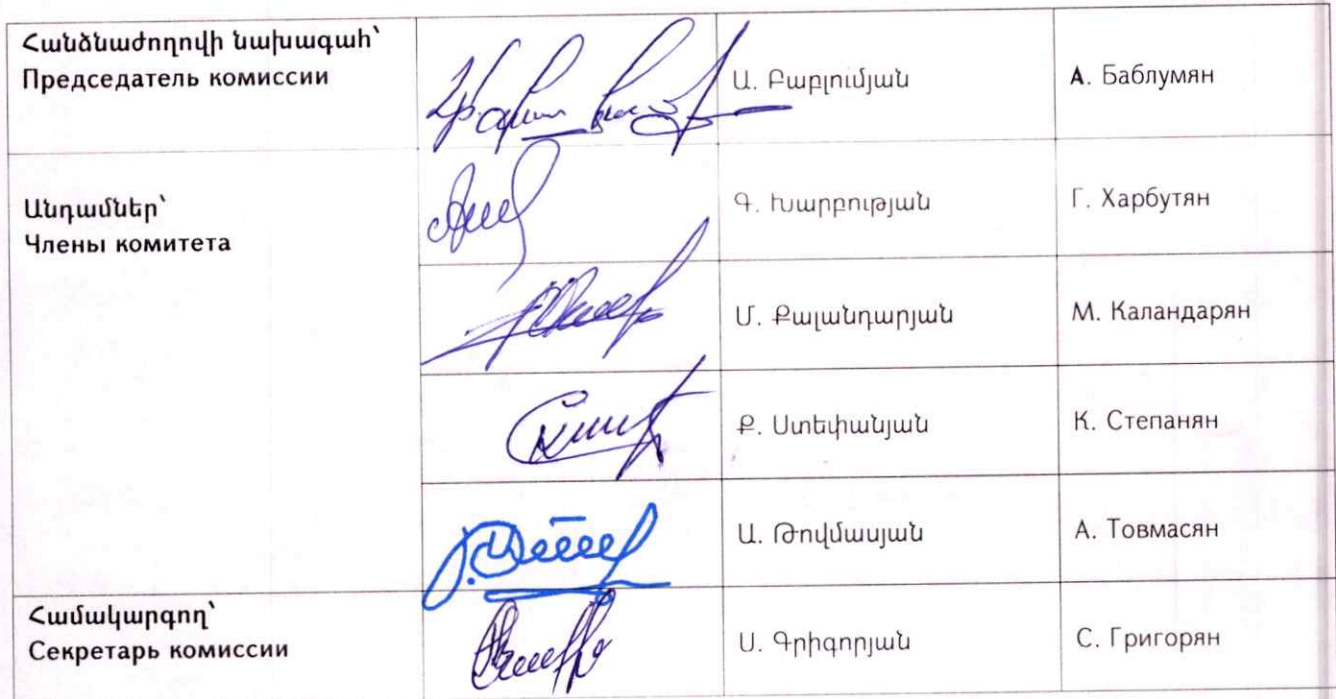 Հանձնաժողովի նախագահ՝
Председатель комиссии
Ա. Բաբլումյան
А. Баблумян
Անդամներ՝
Члены комитета
Գ. Խարբության
Г. Харбутян
Մ. Քալանդարյան
М. Каландарян
Ք. Ստեփանյան
К. Степанян
Ա. Թովմասյան
А. Товмасян
Համակարգող՝
Секретарь комиссии
Ս. Գրիգորյան
С. Григорян